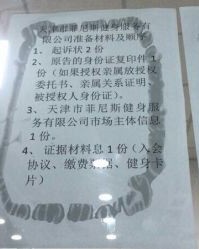 天津市菲尼斯健身服务有
限公司准备材料及顺序
1、 起诉状2份
2、 原告的身份证复印件1
份（如果授权亲属放授权
委托书、亲属关系证明、
被授权人身份证）。
3、 天津市菲尼斯健身服
务有限公司市场主体信息
1份。
4、 证据材料总1份（入会
协议、缴费票据、健身卡
片）